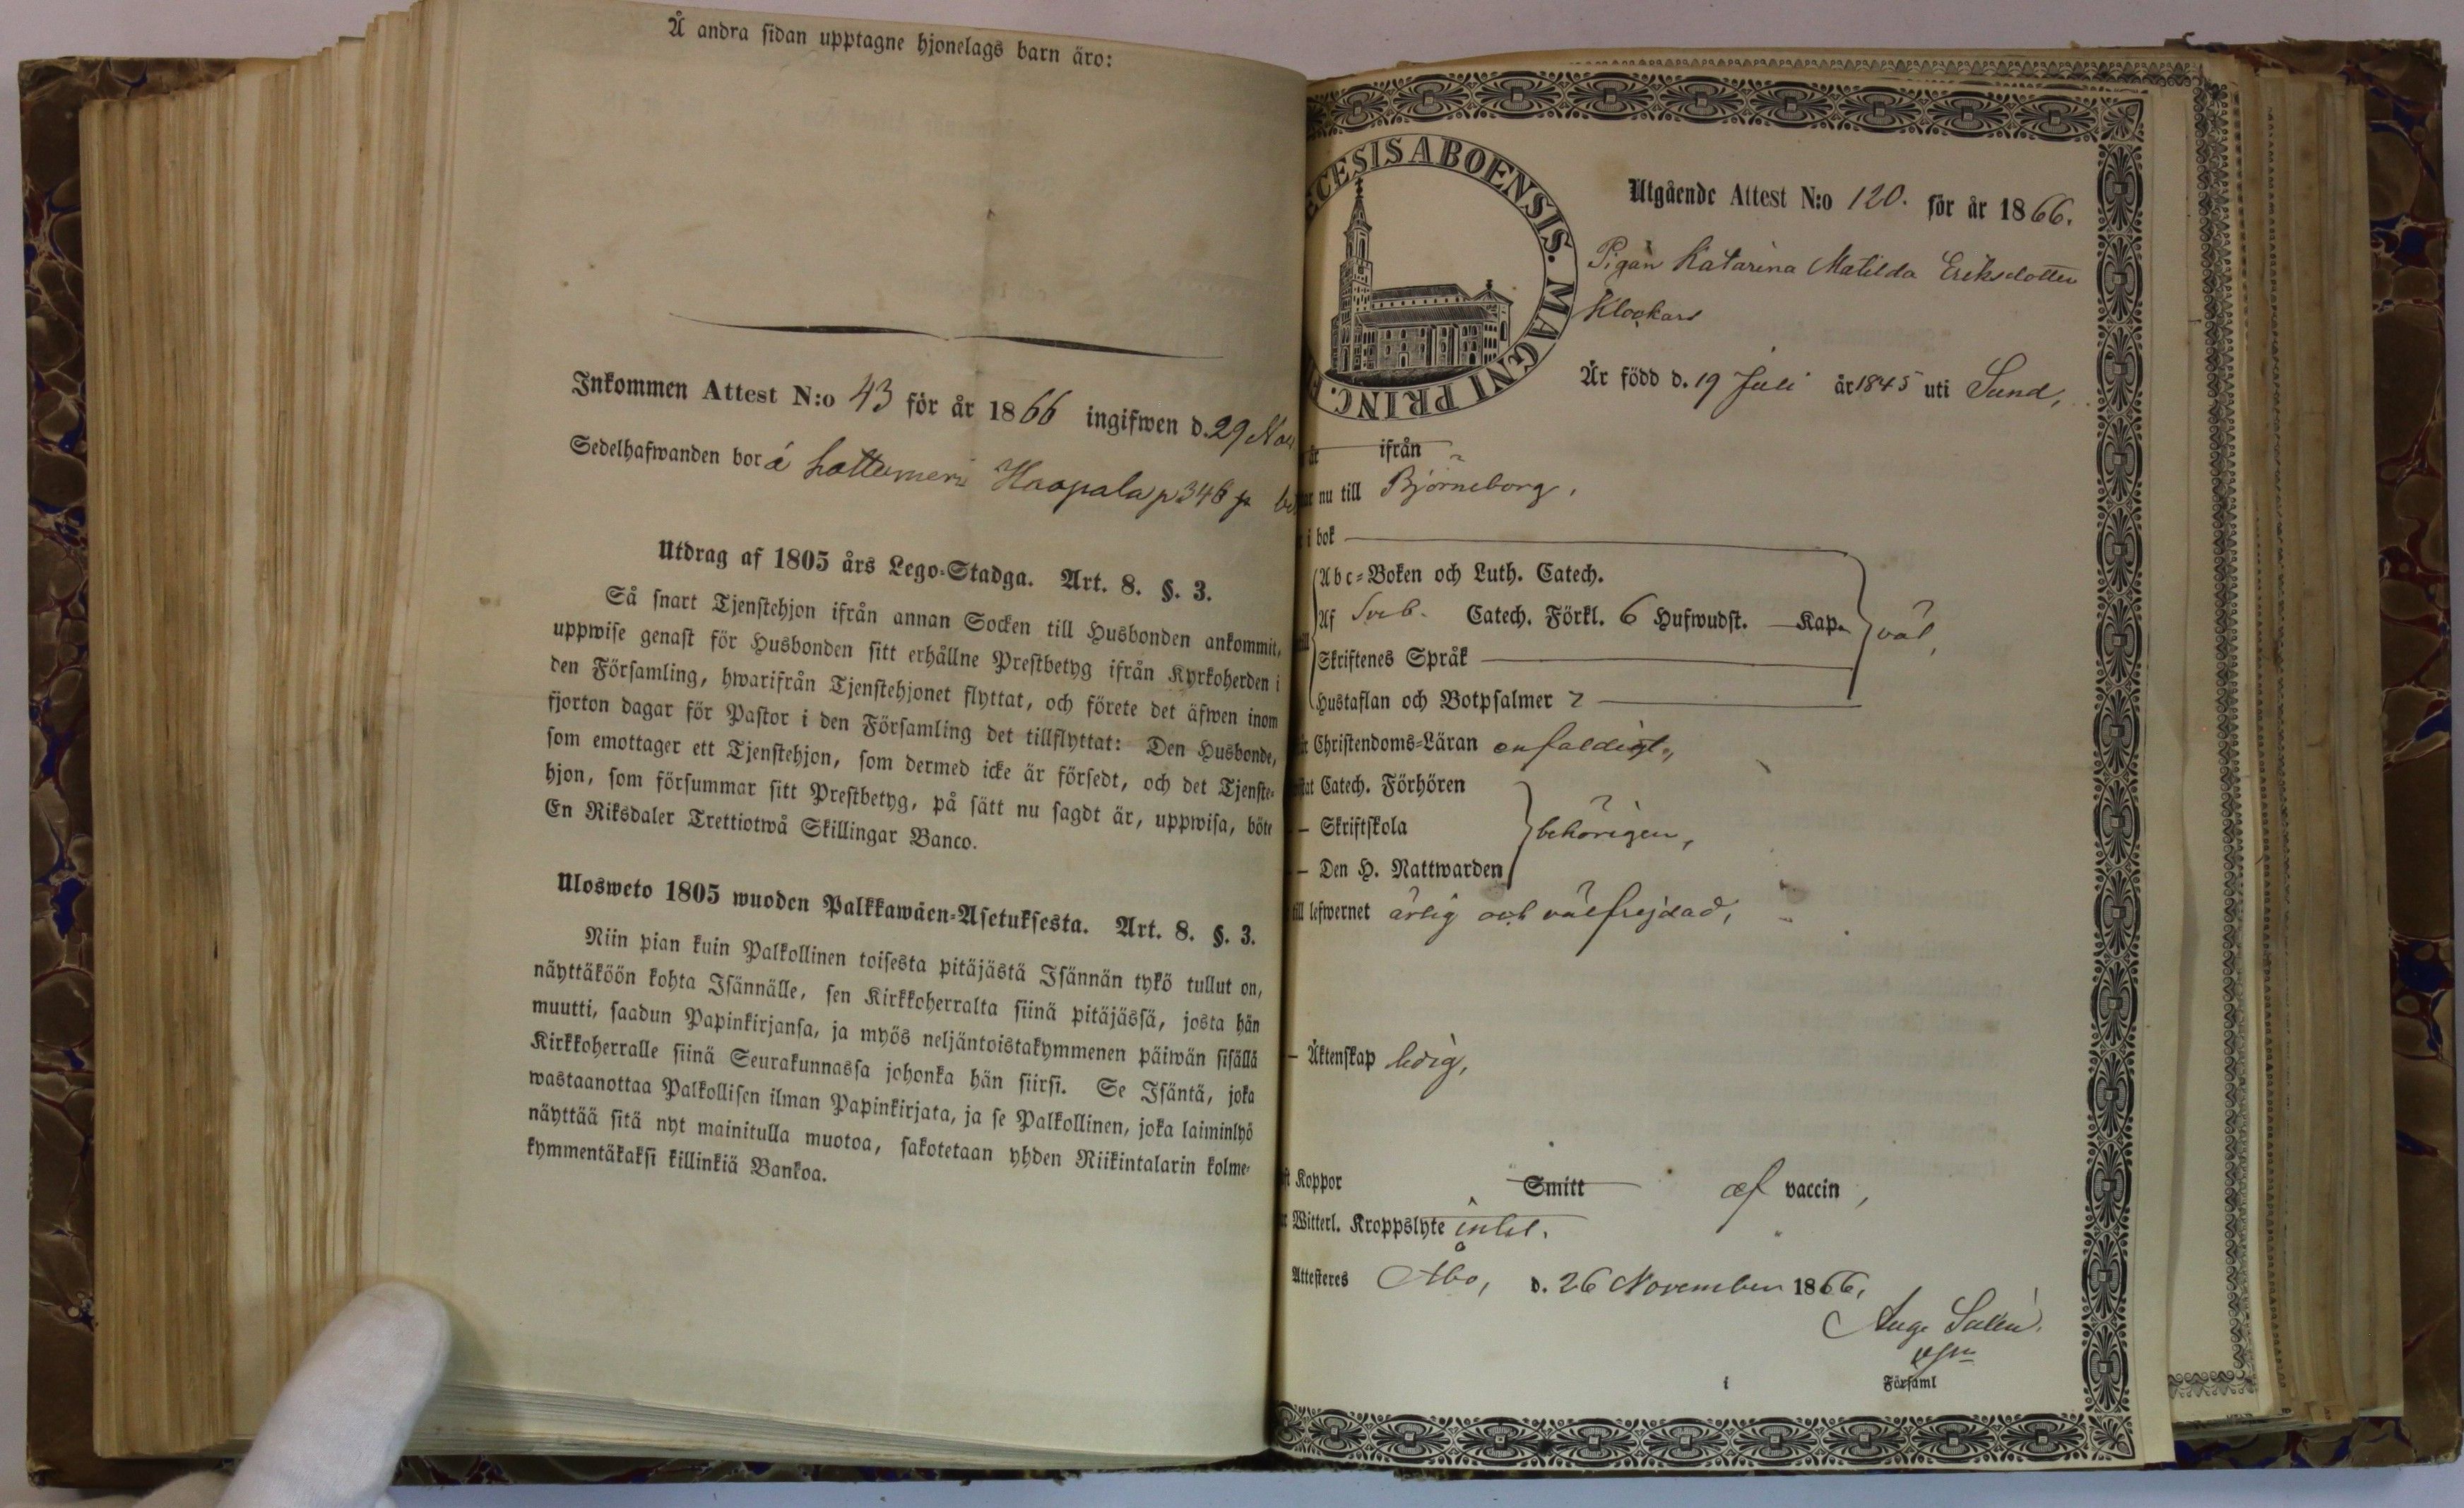 Å andra sidan upptagne hjonelags barn äro:
Inkommen Attest N:o 43 för år 1866 ingifwen d. 29 Nov
Sedelhafwanden bor å Lattomeri Haapala p 346
Utdrag af 1805 års Lego-Stadga. Art. 8. §. 3.
Så snart Tjenstehjon ifrån annan Socken till Husbonden ankommit,
uppwise genast för Husbonden sitt erhållne Prestbetyg ifrån Kyrkoherden i
den Församling, hwarifrån Tjenstehjonet flyttat, och förete det äfwen inom
fjorton dagar för Pastor i den Församling det tillflyttat: Den Husbonde,
som emottager ett Tjenstehjon, som dermed icke är försedt, och det Tjenste-
hjon, som försummar sitt Prestbetyg, på sätt nu sagdt är, uppwisa, böte
En Riksdaler Trettiotwå Skillingar Banco.
Ulosweto 1805 wuoden Palkkawäen-Asetuksesta. Art. 8. §. 3.
Niin pian kuin Palkollinen toisesta pitäjästä Isännän tykö tullut on,
näyttäköön kohta Isännälle, sen Kirkkoherralta siinä pitäjässä, josta hän
muutti, saadun Papinkirjansa, ja myös neljäntoistakymmenen päiwän sisällä
Kirkkoherralle siinä Seurakunnassa johonka hän siirsi. Se Isäntä, joka
wastaanottaa Palkollisen ilman Papinkirjata, ja se Palkollinen, joka laiminlyö
näyttää sitä nyt mainitulla muotoa, sakotetaan yhden Riikintalarin kolme-
kymmentäkaksi killinkiä Bankoa.
CESIS ABOENSIS. MAGNI PRINC.
Utgående Attest N:o 120. för år 1866.
Pigan Katarina Matilda Eriksdotter
Klockars
Är född d. 19 Juli år 1845 uti Sund,
är ifrån
nu till Björneborg,
i bok
Abc-Boken och Luth. Catech.
Af Sveb. Catech. Förkl. 6 Hufwudst. Kap. väl,
Skriftenes Språk
Hustaflan och Botpsalmer 2
Christendoms-Läran enfaldigt,
Catech. Förhören
— Skriftskola behörigen,
— Den H. Nattwarden
till lefwernet ärlig och välfrejdad,
— Äktenskap ledig,
Koppor Smitt af vaccin,
Witterl. Kroppslyte intet.
Attesteres Åbo, d. 26 November 1866,
Aug. Salén.
i Församl